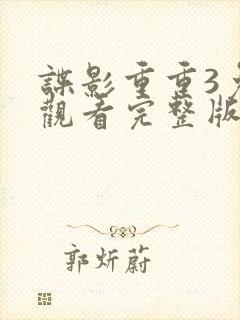 諜影重重3
觀看完整版
郭炘蔚